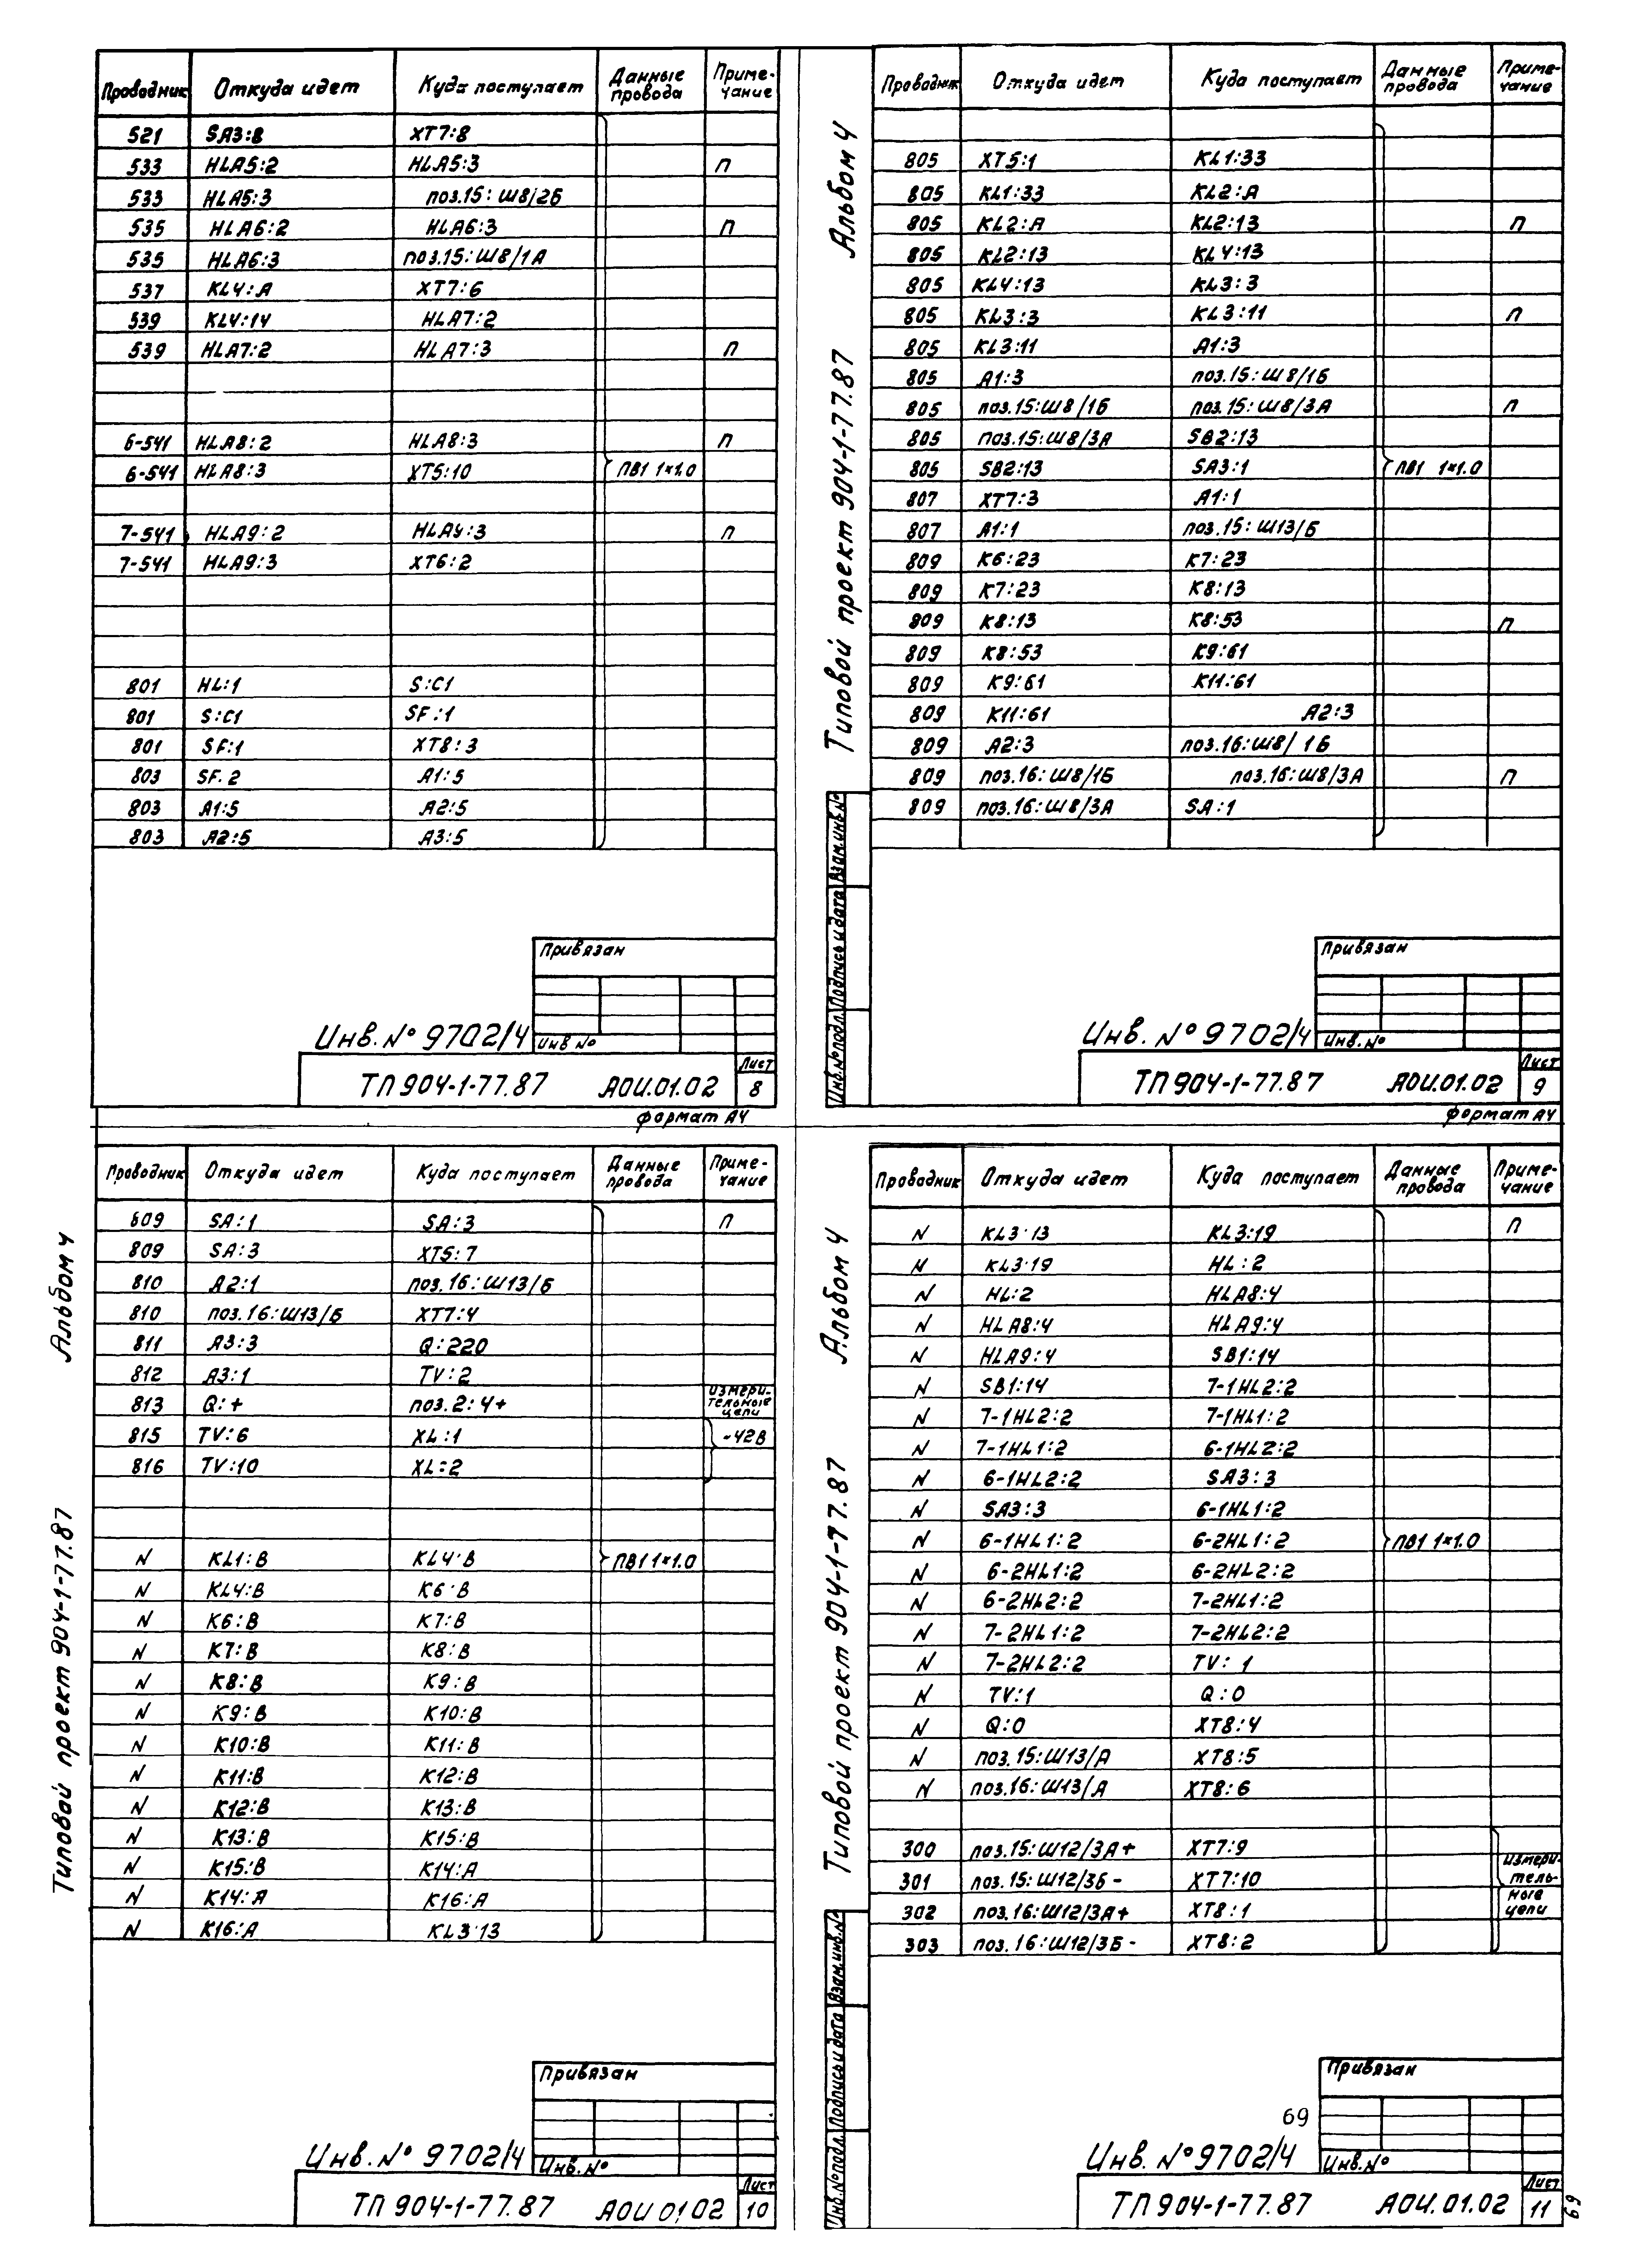 Проводник Откуда идет Куда поступает Данные провода Приме-чание
521 SA3:8 XT7:8
533 HLA5:2 HLA5:3 П
533 HLA5:3 поз.15:Ш8/2Б
535 HLA6:2 HLA6:3 П
535 HLA6:3 поз.15:Ш8/1А
537 KL4:A XT7:6
539 KL4:14 HLA7:2
539 HLA7:2 HLA7:3 П
6-541 HLA8:2 HLA8:3 П
6-541 HLA8:3 XT5:10 ПВ1 1×1.0
7-541 HLA9:2 HLA9:3 П
7-541 HLA9:3 XT6:2
801 HL:1 S:C1
801 S:C1 SF.:1
801 SF:1 XT8:3
803 SF.2 A1:5
803 A1:5 A2:5
803 A2:5 A3:5
Привязан
Инв №
Инв.№ 9702/4
ТП 904-1-77.87 АОИ.01.02 Лист 8
формат А4
Альбом 4
Типовой проект 904-1-77.87
Инв.№ подл. Подпись и дата Взам.инв.№
Проводник Откуда идет Куда поступает Данные провода Приме-чание
805 XT5:1 KL1:33
805 KL1:33 KL2:A
805 KL2:A KL2:13 П
805 KL2:13 KL4:13
805 KL4:13 KL3:3
805 KL3:3 KL3:11 П
805 KL3:11 A1:3
805 A1:3 поз.15:Ш8/1Б
805 поз.15:Ш8/1Б поз.15:Ш8/3А П
805 поз.15:Ш8/3А SB2:13
805 SB2:13 SA3:1 ПВ1 1×1.0
807 XT7:3 A1:1
807 A1:1 поз.15:Ш13/Б
809 K6:23 K7:23
809 K7:23 K8:13
809 K8:13 K8:53 П
809 K8:53 K9:61
809 K9:61 K11:61
809 K11:61 A2:3
809 A2:3 поз.16:Ш8/1Б
809 поз.16:Ш8/1Б поз.16:Ш8/3А П
809 поз.16:Ш8/3А SA:1
Привязан
Инв.№
Инв.№ 9702/4
ТП 904-1-77.87 АОИ.01.02 Лист 9
формат А4
Альбом 4
Типовой проект 904-1-77.87
Проводник Откуда идет Куда поступает Данные провода Приме-чание
609 SA:1 SA:3 П
809 SA:3 XT5:7
810 A2:1 поз.16:Ш13/Б
810 поз.16:Ш13/Б XT7:4
811 A3:3 Q:220
812 A3:1 TV:2
813 Q:+ поз.2:4+ измери-тельные цепи
815 TV:6 XL:1 ~42В
816 TV:10 XL:2
N KL1:B KL4:B ПВ1 1×1.0
N KL4:B K6:B
N K6:B K7:B
N K7:B K8:B
N K8:B K9:B
N K9:B K10:B
N K10:B K11:B
N K11:B K12:B
N K12:B K13:B
N K13:B K15:B
N K15:B K14:A
N K14:A K16:A
N K16:A KL3:13
Привязан
Инв.№
Инв.№ 9702/4
ТП 904-1-77.87 АОИ 01.02 Лист 10
Альбом 4
Типовой проект 904-1-77.87
Инв.№ подл. Подпись и дата Взам.инв.№
Проводник Откуда идет Куда поступает Данные провода Приме-чание
N KL3:13 KL3:19 П
N KL3:19 HL:2
N HL:2 HLA8:4
N HLA8:4 HLA9:4
N HLA9:4 SB1:14
N SB1:14 7-1HL2:2
N 7-1HL2:2 7-1HL1:2
N 7-1HL1:2 6-1HL2:2
N 6-1HL2:2 SA3:3
N SA3:3 6-1HL1:2
N 6-1HL1:2 6-2HL1:2 ПВ1 1×1.0
N 6-2HL1:2 6-2HL2:2
N 6-2HL2:2 7-2HL1:2
N 7-2HL1:2 7-2HL2:2
N 7-2HL2:2 TV:1
N TV:1 Q:0
N Q:0 XT8:4
N поз.15:Ш13/А XT8:5
N поз.16:Ш13/А XT8:6
300 поз.15:Ш12/3А+ XT7:9
301 поз.15:Ш12/3Б- XT7:10 измери-тель-ные цепи
302 поз.16:Ш12/3А+ XT8:1
303 поз.16:Ш12/3Б- XT8:2
Привязан
69
Инв.№
Инв.№ 9702/4
ТП 904-1-77.87 АОИ.01.02 Лист 11
69